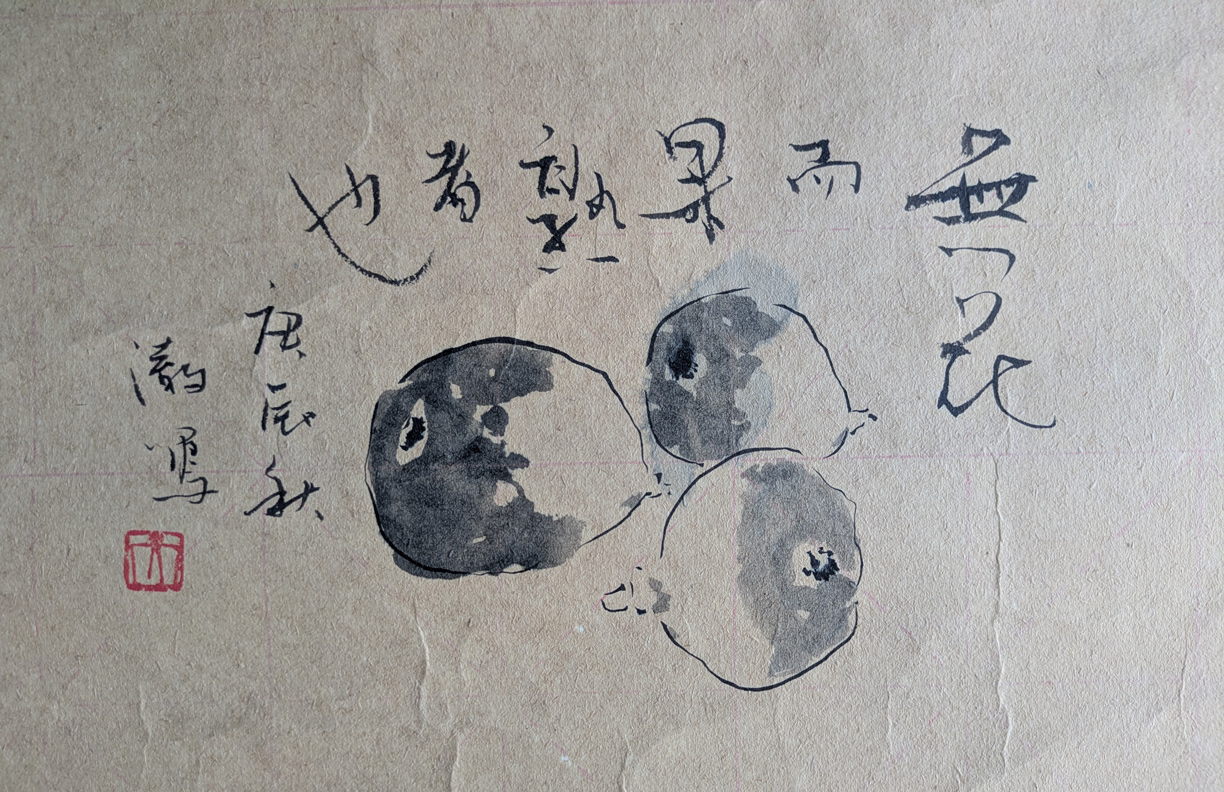 無花而果熟者也
庚辰秋